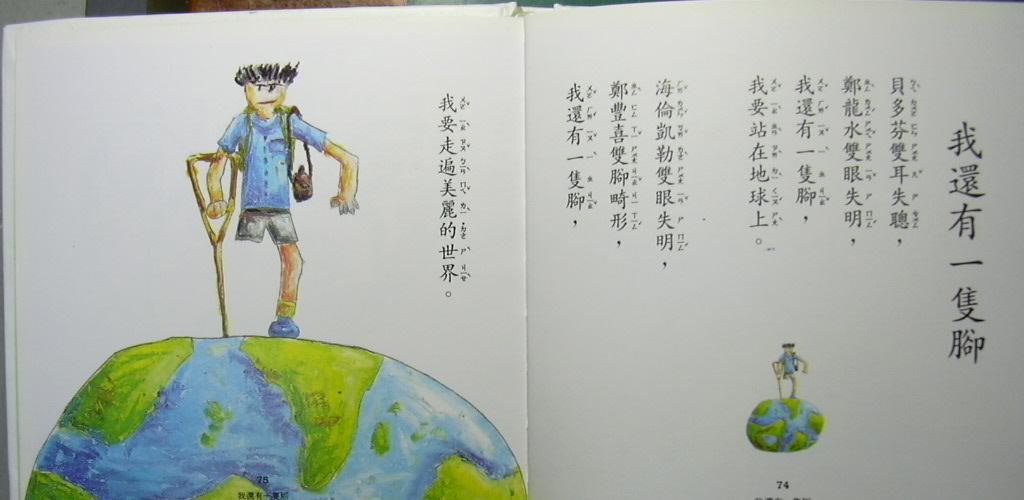 我還有一隻腳
貝多芬雙耳失聰，
鄭龍水雙眼失明，
我還有一隻腳，
我要站在地球上。
海倫凱勒雙眼失明，
鄭豐喜雙腳畸形，
我還有一隻腳，
74
我要走遍美麗的世界。
75
我還有一隻腳